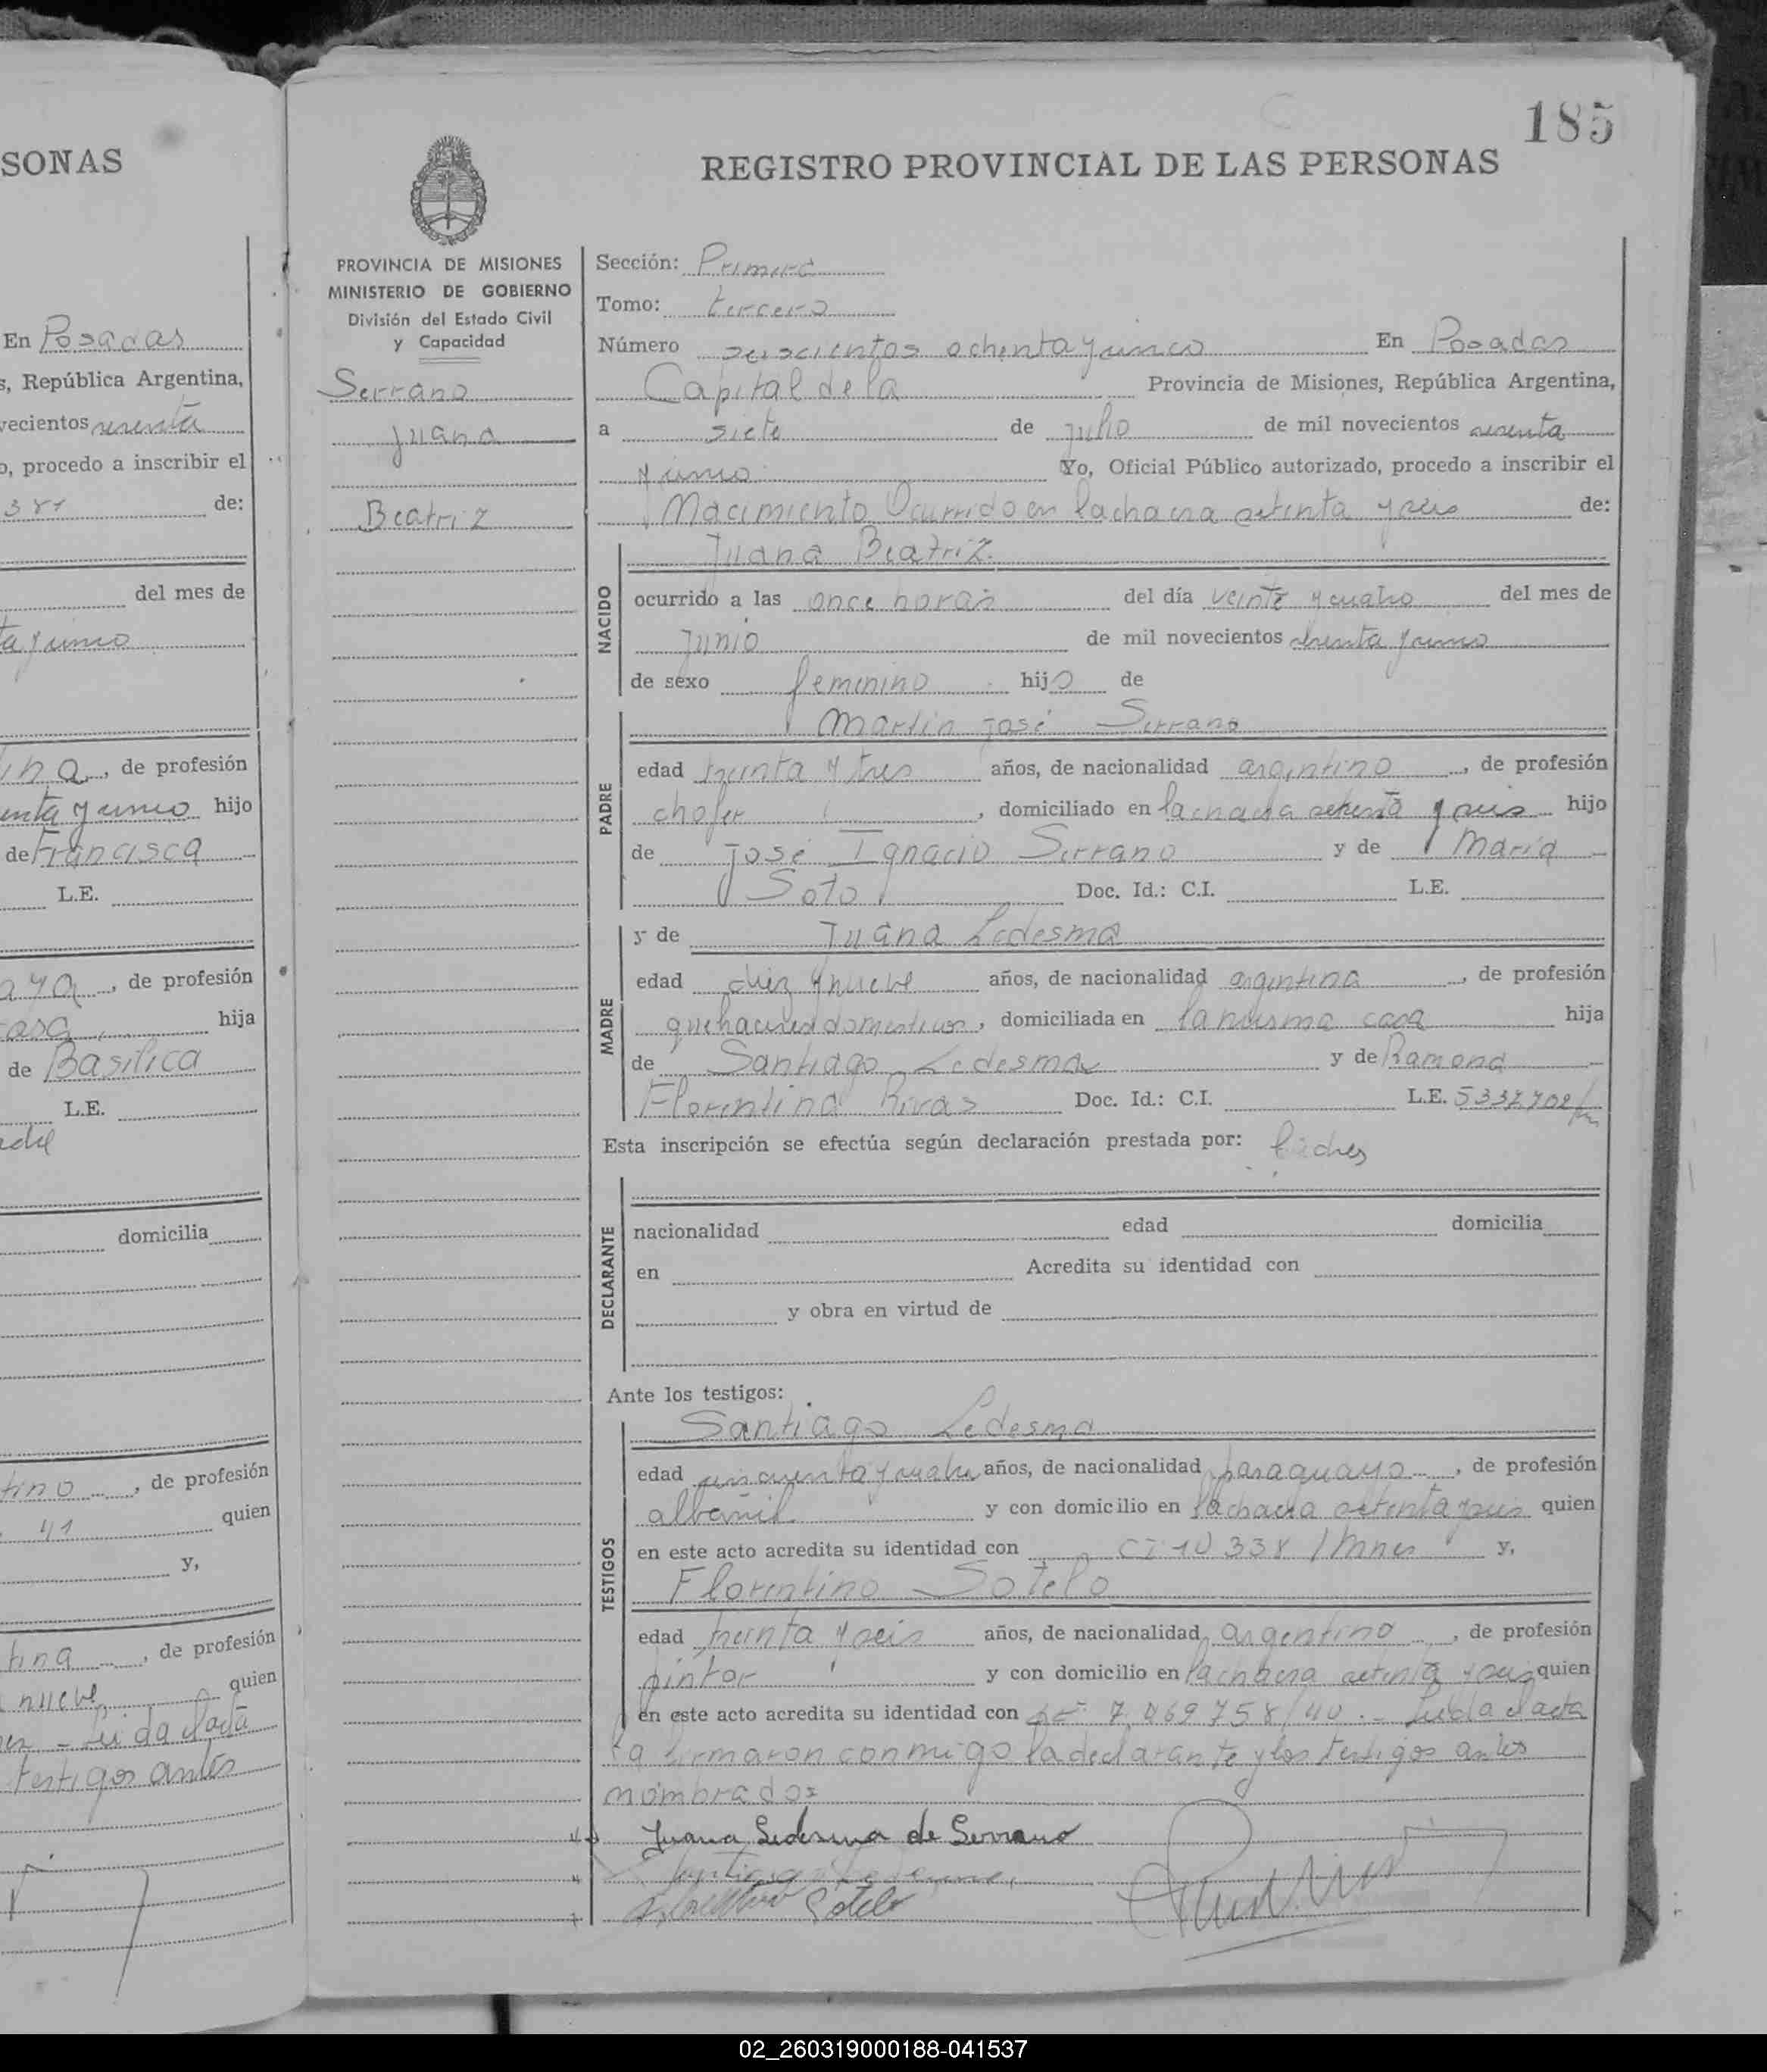 SONAS
En Posadas
s, República Argentina,
vecientos sesenta
o, procedo a inscribir el
381 de:
del mes de
ta y uno
ina, de profesión
enta y uno hijo
de Francisca
L.E.
aya, de profesión
casa, hija
de Basilica
L.E.
adre
domicilia
tino, de profesión
41 quien
y,
tina, de profesión
nueve quien
Leida el acta
testigos antes
185
REGISTRO PROVINCIAL DE LAS PERSONAS
PROVINCIA DE MISIONES
MINISTERIO DE GOBIERNO
División del Estado Civil
y Capacidad
Serrano
Juana
Beatriz
Sección: Primera
Tomo: tercero
Número seiscientos ochenta y cinco En Posadas
Capital de la Provincia de Misiones, República Argentina,
a siete de julio de mil novecientos sesenta
y uno Yo, Oficial Público autorizado, procedo a inscribir el
Nacimiento Ocurrido en la chacra setenta y seis de:
Juana Beatriz
NACIDO
ocurrido a las once horas del día veinte y cuatro del mes de
junio de mil novecientos sesenta y uno
de sexo femenino hijo de
Martín José Serrano
PADRE
edad treinta y tres años, de nacionalidad argentino, de profesión
chofer, domiciliado en la chacra setenta y seis hijo
de José Ignacio Serrano y de María
Soto Doc. Id.: C.I. L.E.
MADRE
y de Juana Ledesma
edad diez y nueve años, de nacionalidad argentina, de profesión
quehaceres domesticos, domiciliada en la misma casa hija
de Santiago Ledesma y de Ramona
Florentina Rivas Doc. Id.: C.I. L.E. 5337702
Esta inscripción se efectúa según declaración prestada por:
DECLARANTE
nacionalidad edad domicilia
en Acredita su identidad con
y obra en virtud de
Ante los testigos:
TESTIGOS
Santiago Ledesma
edad cincuenta y cuatro años, de nacionalidad paraguayo, de profesión
albañil y con domicilio en la chacra setenta y seis quien
en este acto acredita su identidad con CI 10338 / Mnes y,
Florentino Sotelo
edad treinta y seis años, de nacionalidad argentino, de profesión
pintor y con domicilio en la chacra setenta y seis quien
en este acto acredita su identidad con LE 7.469758/40.- Leida el acta
la firmaron conmigo la declarante y los testigos antes
nombrados
Juana Ledesma de Serrano
Santiago Ledesma
Florentino Sotelo
02_260319000188-041537